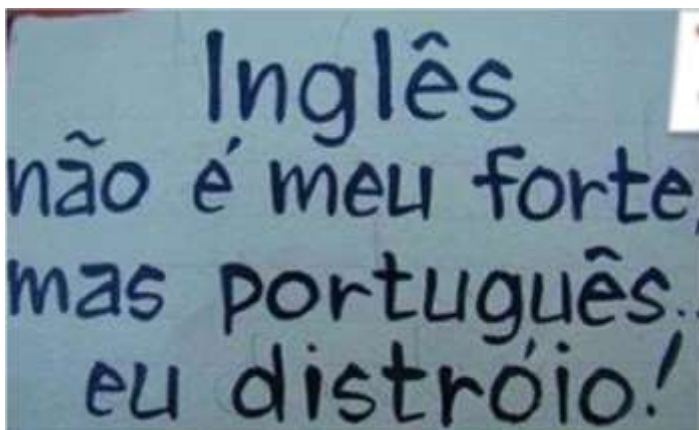 Inglês
não é meu forte,
mas português...
eu distróio!